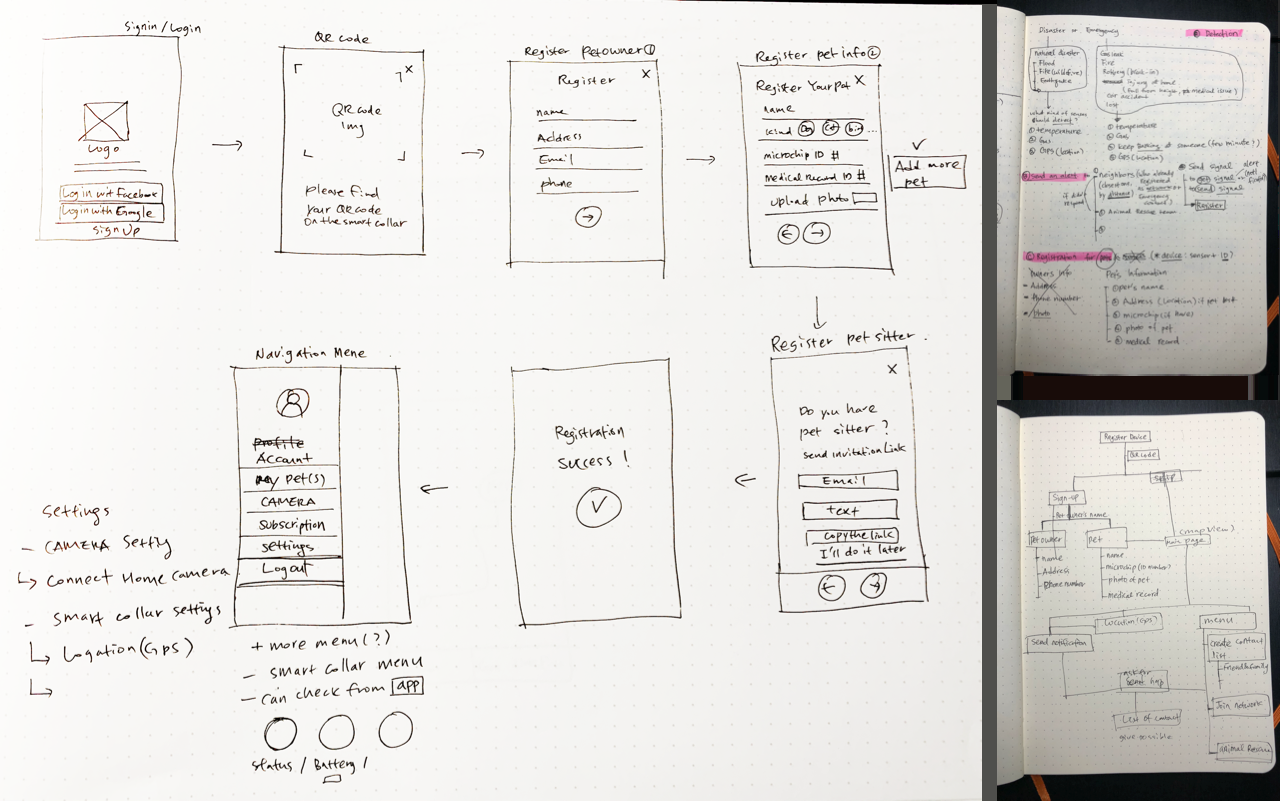 Signin/Login
Logo
Log in wit Facebook
Login with Google
Sign Up
QR code
QR code
img
please find
your QR code
On the smart collar
Register Pet owner ①
Register X
name
Address
Email
phone
Register pet info ②
Register Your Pet X
name
kind Dog Cat bird ...
microchip ID #
medical Record ID #
upload photo
Add more
pet
Register pet sitter.
X
Do you have
pet sitter?
send invitation Link
Email
text
copy the link
I'll do it later
Registration
success!
Navigation Mene
Profile
Account
My pet(s)
CAMERA
Subscription
settings
Logout
+ more menu (?)
- smart collar menu
- can check from app
status / Battery /
Settings
- CAMERA Settig
Connect Home camera
- smart collar settigs
Logation (Gps)
Disaster or Emergency
② Detection
Natural disaster
Flood
Fire (wildfire)
Earthquake
Gas leak
Fire
Robbery (break-in)
injury at home
(fall from height, medical issue)
car accident
lost
what kind of sensor
should detect?
① temperature
② Gas
③ GPS (location)
① temperature
② Gas
③ keep barking at someone (few minute?)
④ GPS (location)
Send an alert
Neighbors
if didn't
respond
Animal Rescue
Send signal alert
signal
Registration for pet (* device: sensor + ID)
Owners info
- Address
- Phone number
- Photo
Pet's Information
① pet's name
② Address (Location) if pet lost
③ microchip (if have)
④ photo of pet
⑤ medical record
Register Device
QR code
Sign-up
Pet owner's name
Pet owner
- name
- Address
- Phone number
Pet
- name
- microchip (ID number)
- photo of pet
- medical record
(map view)
main page
Location (GPS)
Send notification
menu
create contact
list
- friend & family
Join network
Animal Rescue
ask for
help
List of contact